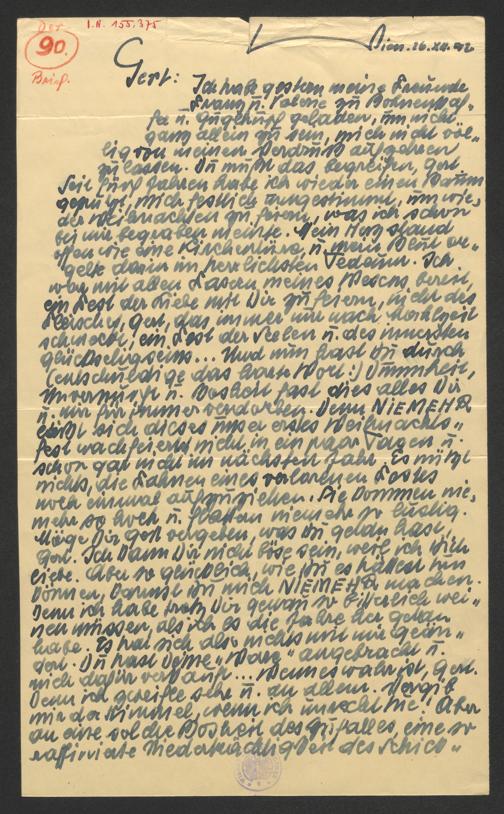 Der
90.
Brief.
I.N. 155.375
Wien. 26.XII.42
Gert: Ich habe gestern meine Freunde
Franz u. Valerie zu Bohnenkaf-
fe u. Gugelhupf geladen, um nicht
ganz allein zu sein, mich nicht völ-
lig von meinem Verdruß auffressen
zu lassen. Du mußt das begreifen, Gert.
Seit fünf Jahren habe ich wieder einen Baum
geputzt, mich festlich eingestimmt, um wie-
der Weihnachten zu feiern, was ich schon
bei mir begraben meinte. Mein Herz stand
offen wie eine Kirchentüre, u. mein Blut or-
gelte darin im herrlichsten Tedeum. Ich
war mit allen Fasern meines Wesens bereit,
ein Fest der Liebe mit Dir zu feiern, nicht des
Fleisches, Gert, das immer nur nach
schmeckt, ein Fest der Seelen u. des innersten
Glückseligseins... Und nun hast Du durch
(entschuldige das harte Wort!) Dummheit,
Unvernunft u. Bosheit fast dies alles Dir
u. mir für immer verdorben. Denn NIEMEHR
läßt sich dieses unser erstes Weihnachts-
fest nachfeiern, nicht in ein paar Tagen u.
schon gar nicht im nächsten Jahr. Es nützt
nichts, die Fahnen eines verlorenen Festes
noch einmal aufzuziehen. Sie kommen nie-
mehr so hoch u. flattern niemehr so lustig.
Möge Dir Gott vergeben, was Du getan hast,
Gert. Ich kann Dir nicht böse sein, weil ich Dich
liebe. Aber so glücklich, wie Du es hättest tun
können, kannst Du mich NIEMEHR machen.
Denn ich habe trotz Dir genau so bitterlich wei-
nen müssen, als ich es die Jahre her getan
habe. Es hat sich also nichts mit mir geän-
dert. Du hast Deine "Ware" angebracht u.
mich dafür verkauft... Wenn es wahr ist, Gert.
Denn ich zweifle sehr u. an allem. Vergib
mir der Himmel, wenn ich unrecht tue! Aber
an eine solche Bosheit des Zufalles, eine so
raffinierte Niederträchtigkeit des Schick-